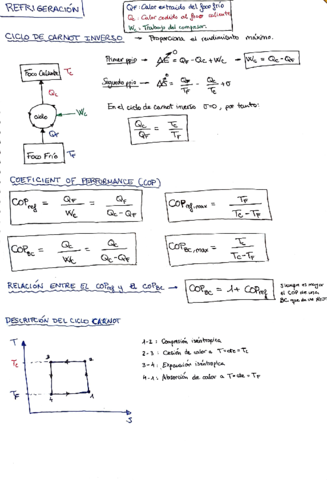 REFRIGERACIÓN
QF: Calor extraído del foco frío
Qc: Calor cedido al foco caliente
Wc: Trabajo del compresor
CICLO DE CARNOT INVERSO → Proporciona el rendimiento máximo.
Foco Caliente Tc
Qc
Ciclo ← Wc
QF
Foco Frío TF
Primer ppio → ΔE = QF - Qc + Wc → Wc = Qc - QF
Segundo ppio → ΔS = QF/TF - Qc/Tc + σ
En el ciclo de carnot inverso σ=0, por tanto:
Qc/QF = Tc/TF
COEFICIENT OF PERFORMANCE (COP)
COPref = QF/Wc = QF/(Qc-QF)
COPref,max = TF/(Tc-TF)
COPBC = Qc/Wc = Qc/(Qc-QF)
COPBC,max = Tc/(Tc-TF)
RELACIÓN ENTRE EL COPref Y EL COPBC → COPBC = 1 + COPref
Siempre es mejor
el COP de una
BC que de
DESCRIPCIÓN DEL CICLO CARNOT
T
Tc
TF
3
2
4
1
S
1-2: Compresión isentrópica
2-3: Cesión de calor a T=cte=Tc
3-4: Expansión isentrópica
4-1: Absorción de calor a T=cte=TF